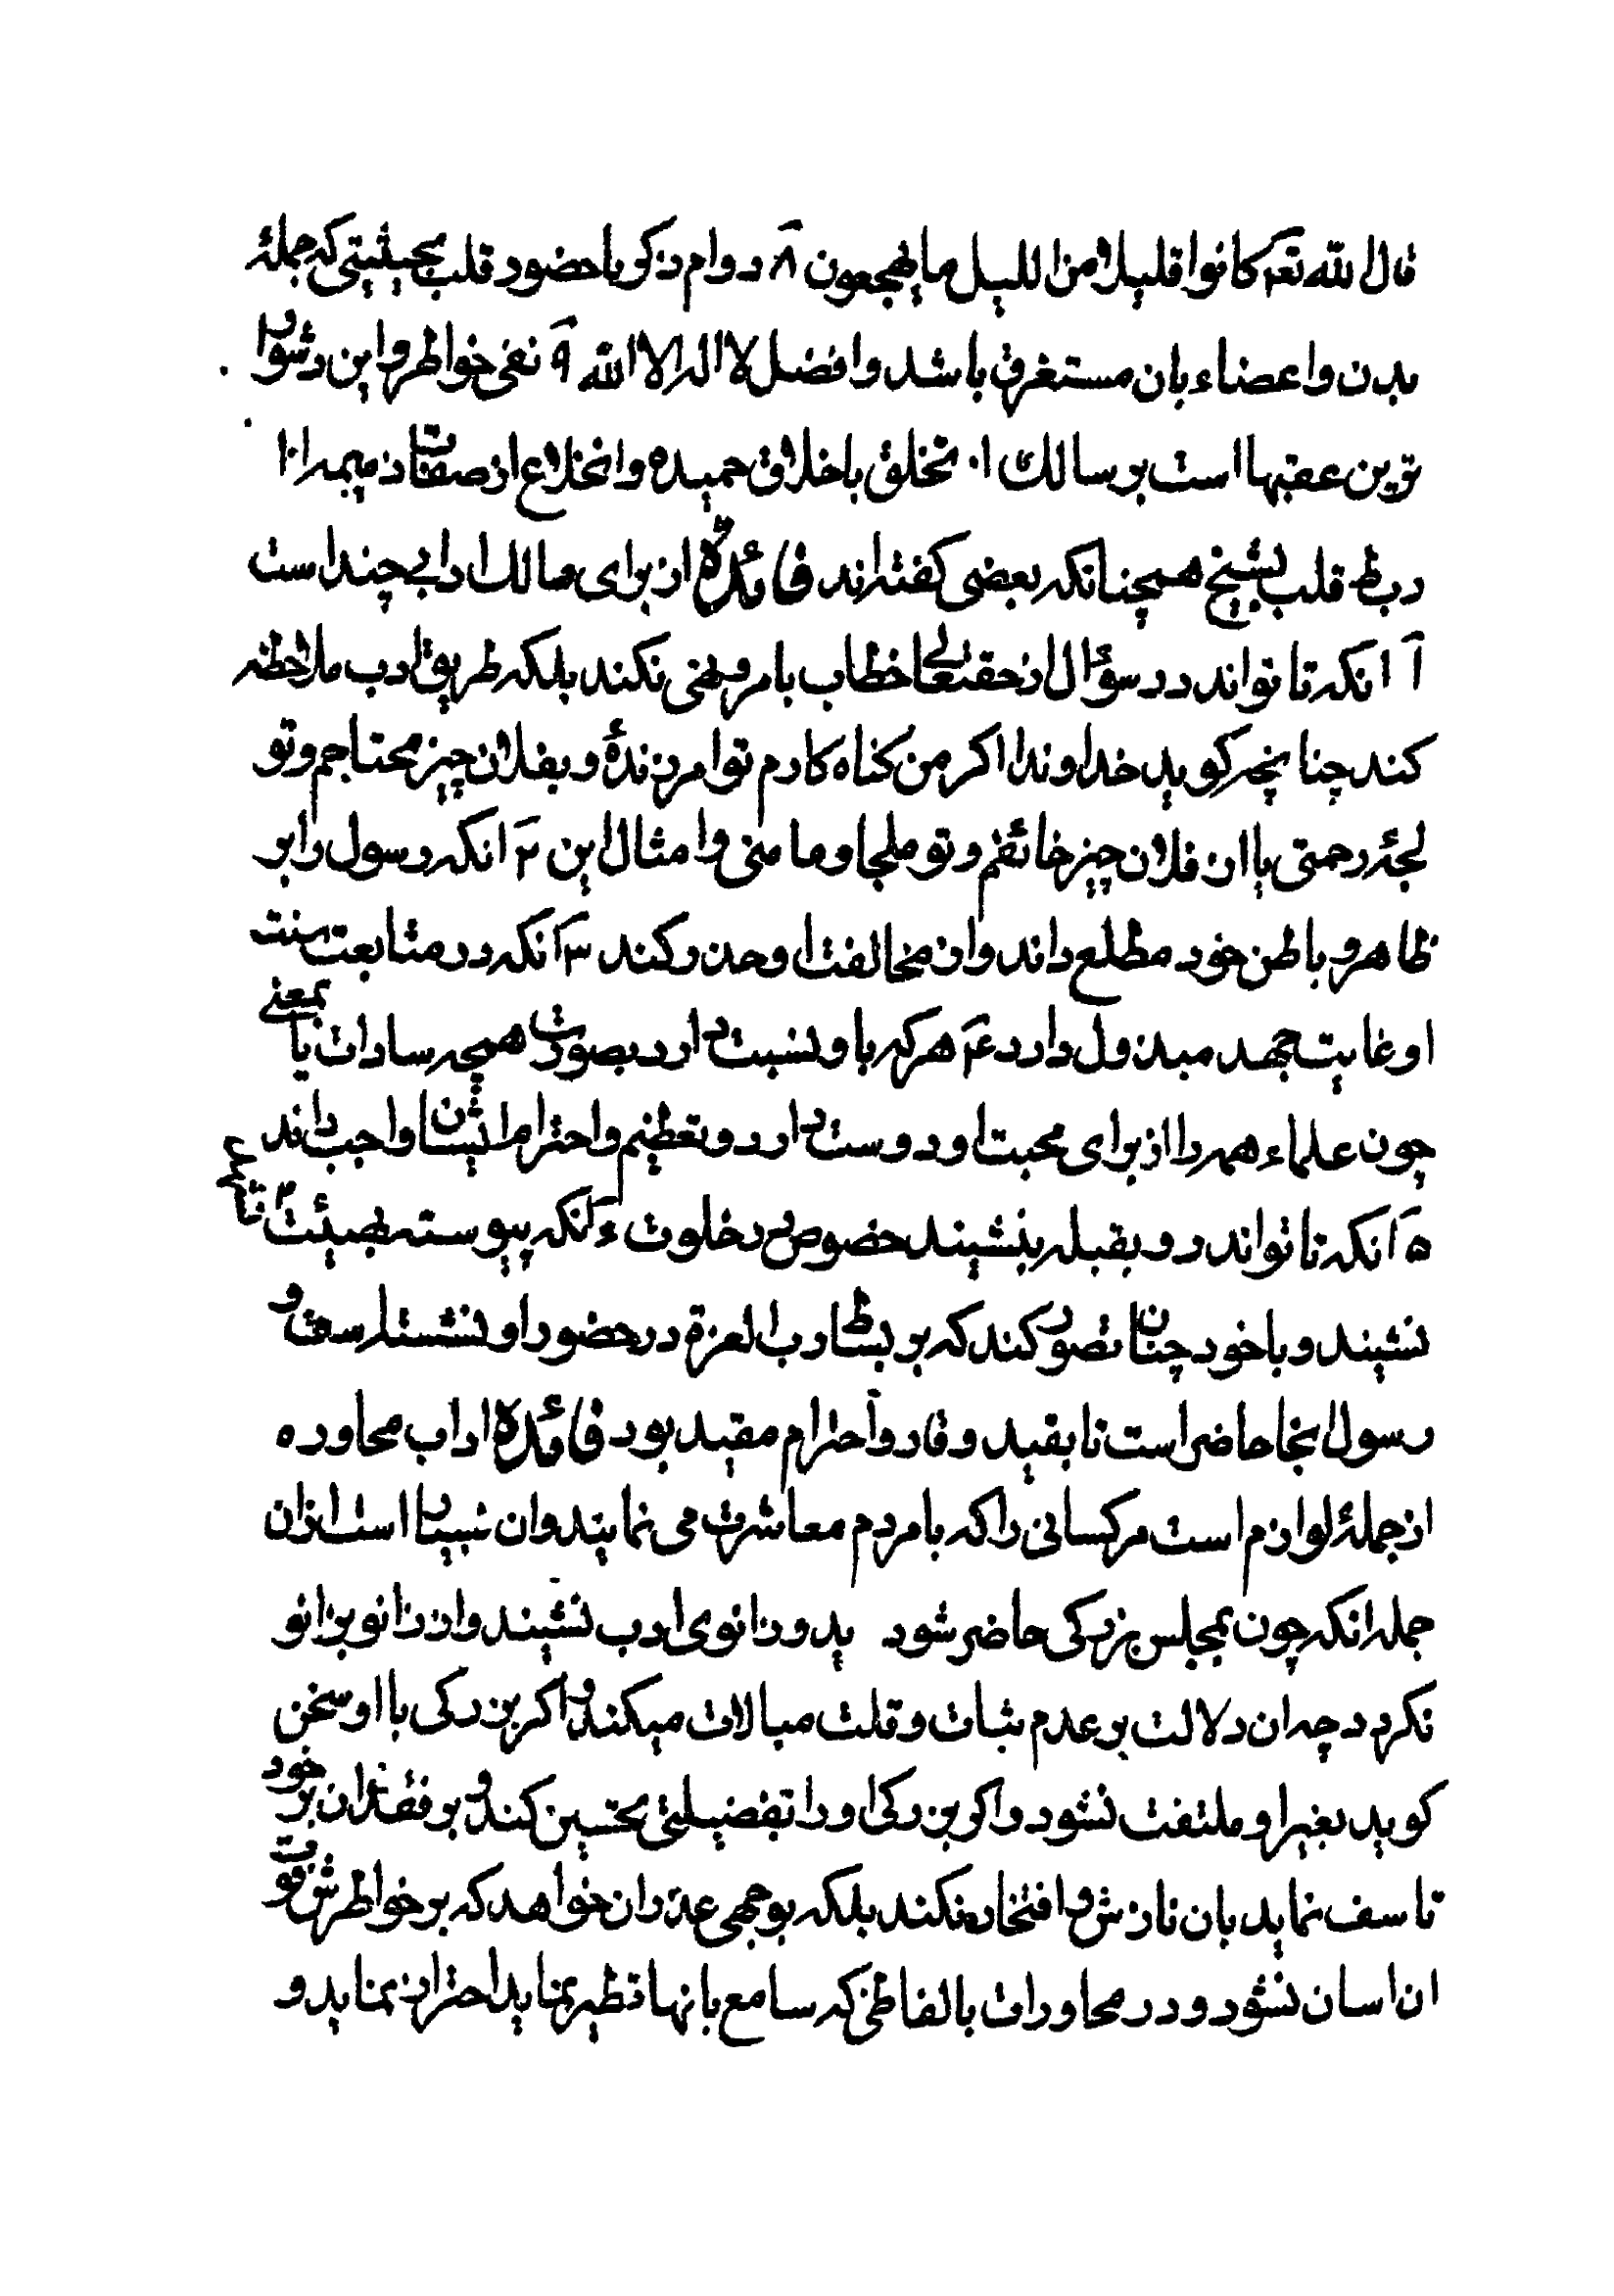 قال الله تعم كانوا قليلا من الليل ما يهجعون ٨ دوام ذكر با حضور قلب بحيثيتي كه جملهٔ
بدن و اعضاء بان مستغرق باشد و افضل لا اله الا الله ٩ نفى خواطر و اين دشوار
ترين عقبها است بر سالك ١٠ تخلق باخلاق حميده و انخلاع از صفات ذميمه ١١
ربط قلب بشيخ همچنانكه بعضى كفته اند فائدة از براى سالك ادابى چند است
آ انكه تا تواند در سؤال از حقتعالى خطاب بامر و نهى نكند بلكه طريق ادب ملاحظه
كند چنانچه كويد خداوندا اكر من كناه كارم تو امرزندهٔ و بفلان چيز محتاجم و تو
لجهٔ رحمتى يا از فلان چيز خائفم و تو ملجا و مامنى و امثال اين ٢ انكه رسول را بر
ظاهر و باطن خود مطلع داند و از مخالفت او حذر كند ٣ انكه در متابعت سنت
او غايت جهد مبذول دارد ٤ هر كه باو نسبت دارد بصورت همچه سادات يا بمعنى
چون علماء همه را از براى محبت او دوست دارد و تعظيم و احترام ايشان واجب داند
٥ انكه تا تواند رو بقبله بنشيند خصوص در خلوت ٦ انكه پيوسته بهيئت
نشيند و با خود چنان تصور كند كه بر بساط رب العزة در حضور او نشسته است و
رسول بخا حاضر است تا بقيد وقار و احترام مقيد بود فائدة اداب محاوره
از جملهٔ لوازم است مر كسانى را كه با مردم معاشرت مى نمايند و ان بسيار است از ان
جمله انكه چون بمجلس بزركى حاضر شود بدو زانوى ادب نشيند و از زانو بزانو
نكردد چه ان دلالت بر عدم ثبات و قلت مبالات ميكند و اكر بزركى با او سخن
كويد بغير او ملتفت نشود و اكر بزركى او را بفضيلتى تحسين كند و بر فقدان بر خود
تاسف نمايد بان نازش و افتخار نكند بلكه بوجهى عذر ان خواهد كه بر خواطرش فوت
ان اسان نشود و در محاورات بالفاظى كه سامع بانها تطير نمايد احتراز نمايد و